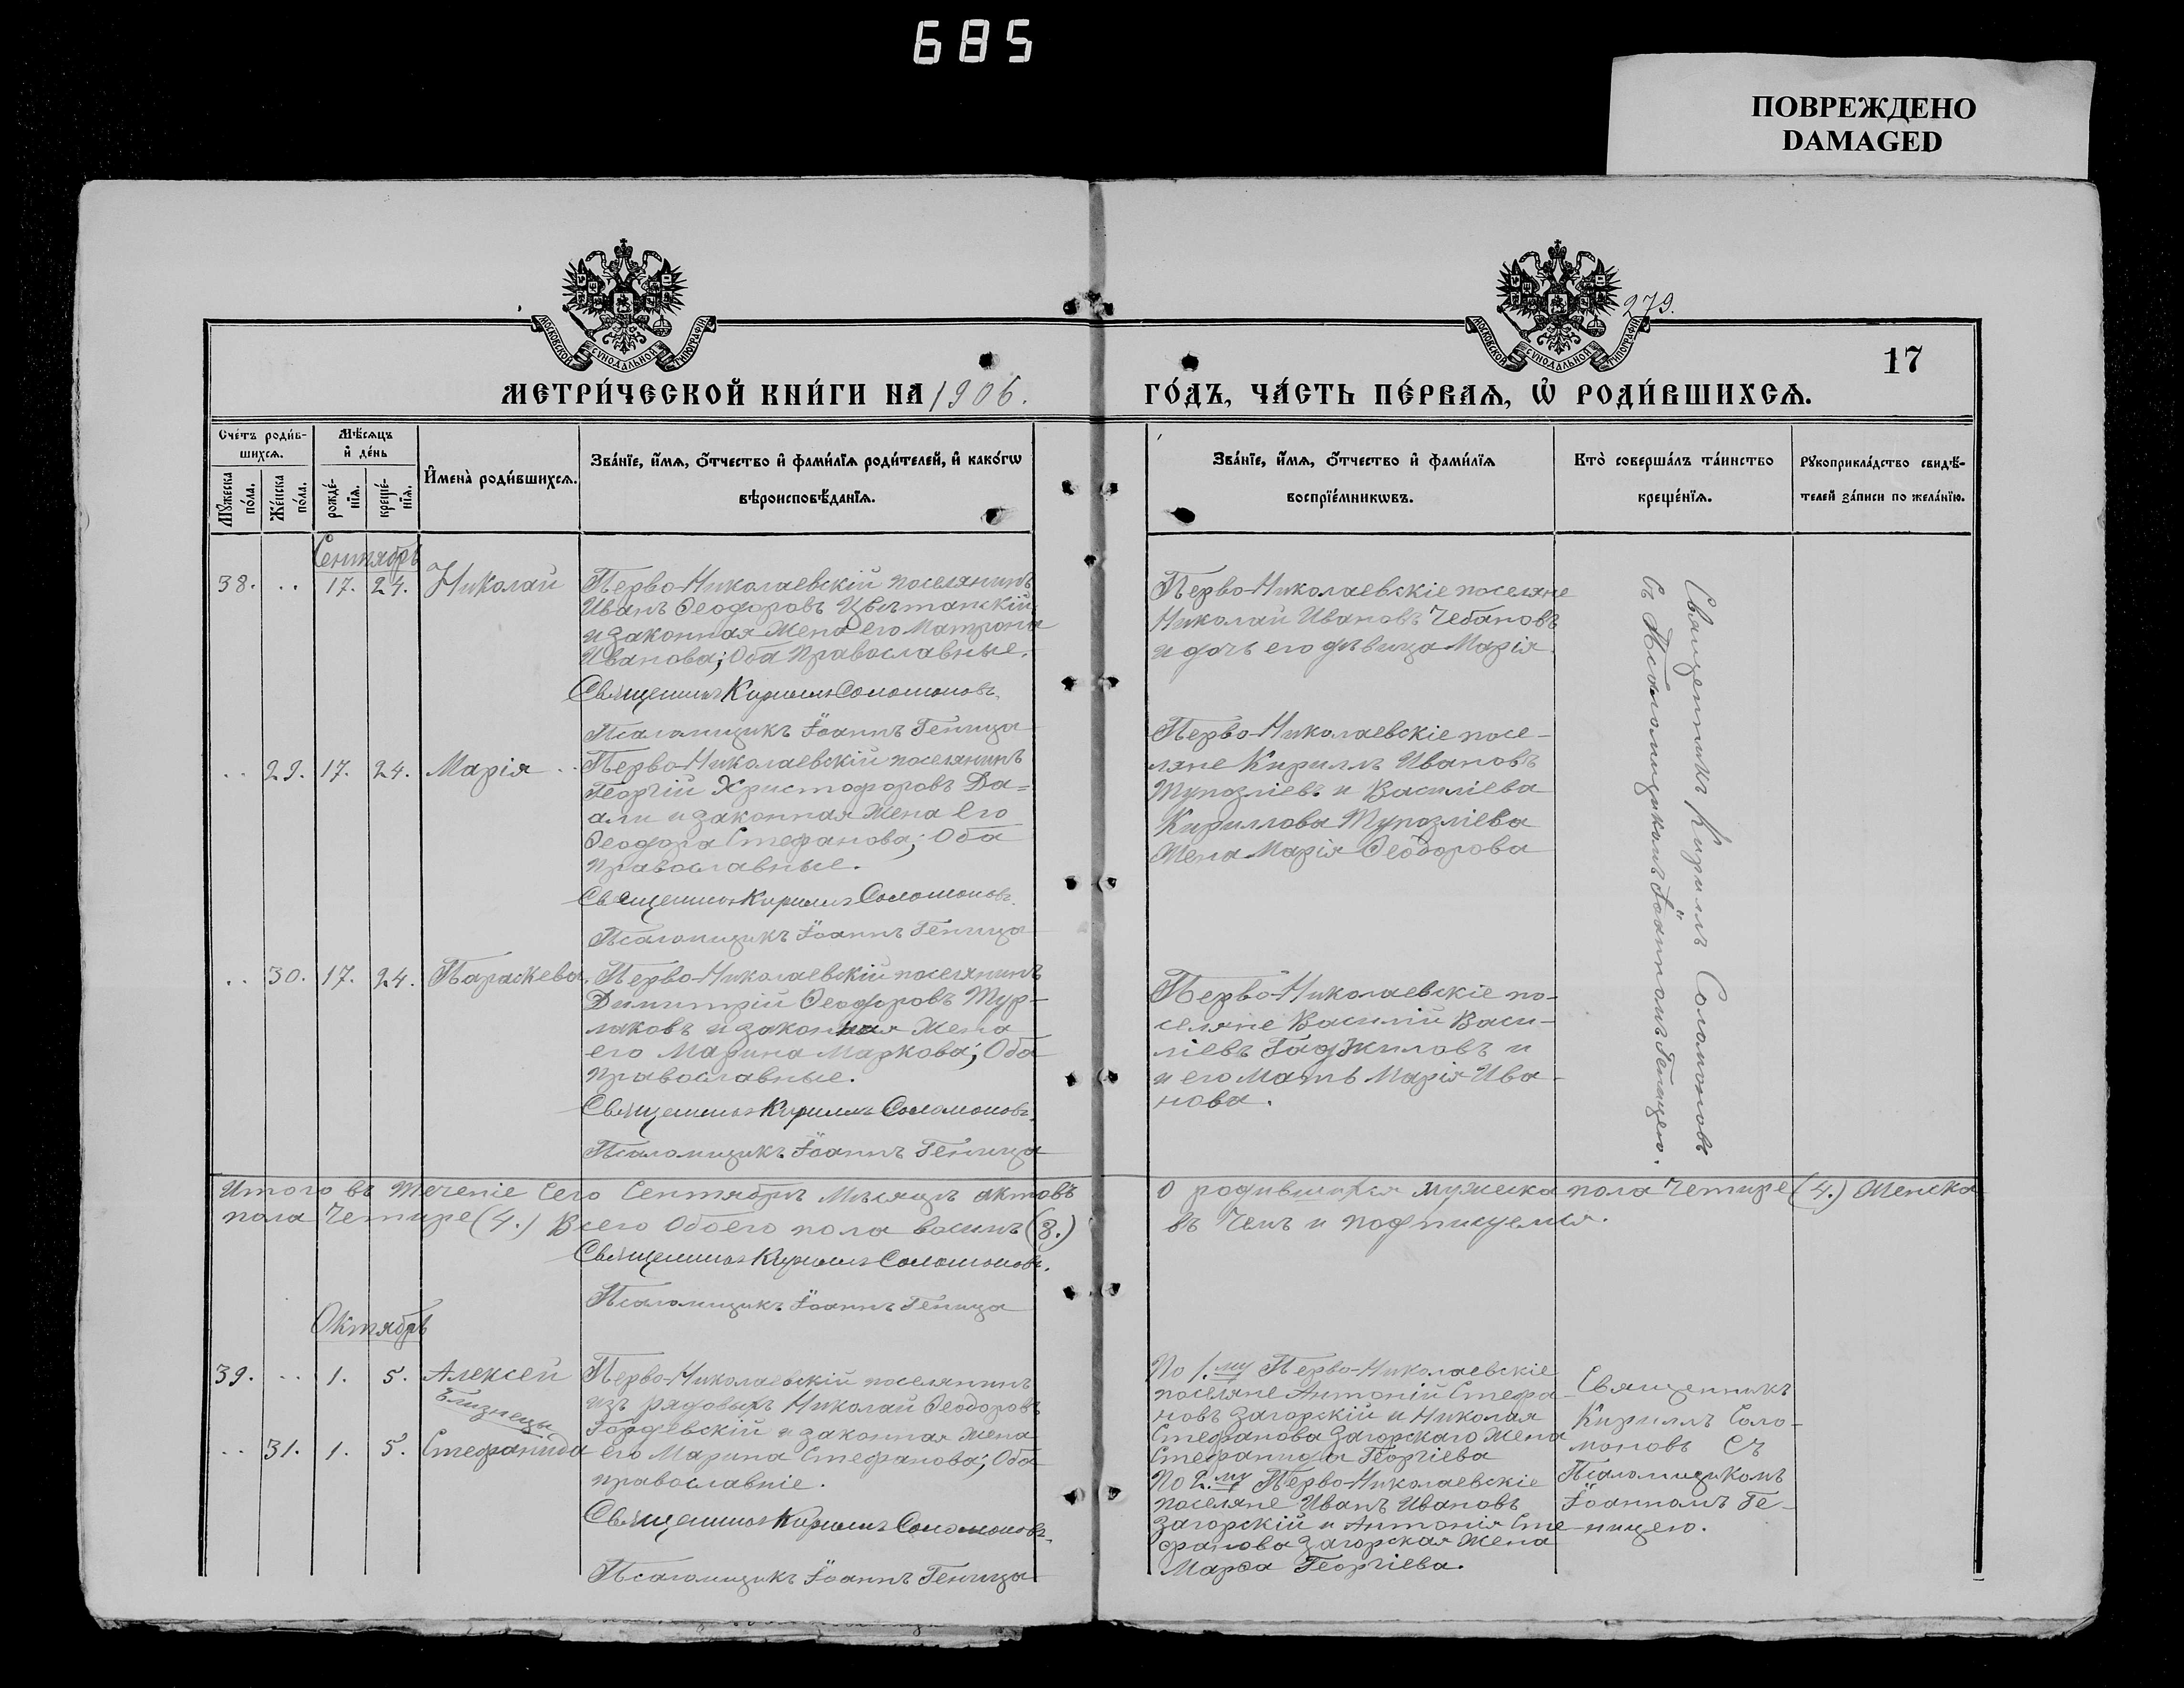 685
ПОВРЕЖДЕНО
DAMAGED
МОСКОВСКОЙ СѴНОДАЛЬНОЙ ТИПОГРАФІИ
МОСКОВСКОЙ СѴНОДАЛЬНОЙ ТИПОГРАФІИ
279.
17
МЕТРИ́ЧЕСКОЙ КНИ́ГИ НА 1906.
ГО́ДЪ, ЧА́СТЬ ПЕ́РВАѦ, Ѡ҆ РОДИ́ВШИХСѦ.
Сче́тъ роди́в-
шихсѧ.
Мѣ́сѧцъ
и҆ де́нь
Мꙋ́жеска по́ла.
Же́нска по́ла.
рожде́-
нїѧ.
креще́-
нїѧ.
И҆мена̀ роди́вшихсѧ.
Зва́нїе, и҆́мѧ, о҆́тчество и҆ фами́лїѧ роди́телей, и҆ како́гѡ
вѣроисповѣ́данїѧ.
Зва́нїе, и҆́мѧ, о҆́тчество и҆ фами́лїѧ
воспрїе́мникѡвъ.
Кто̀ соверша́лъ та́инство
креще́нїѧ.
Рꙋкоприкла́дство свидѣ́-
телей за́писи по жела́нїю.
Сентябрь
38. .. 17. 24. Николай
Перво-Николаевскій поселянинъ
Иванъ Ѳеодоровъ Цвѣтанскій
и законная жена его Матрона
Иванова; Оба Православные.
Священникъ Кириллъ Соломоновъ.
Псаломщикъ Іоаннъ Геница
Перво-Николаевскіе поселяне
Николай Ивановъ Чебановъ
и дочь его дѣвица Марія.
.. 29. 17. 24. Марія ..
Перво-Николаевскій поселянинъ
Георгій Христофоровъ Да=
али и законная жена его
Ѳеодора Стефанова; Оба
православные.
Священникъ Кириллъ Соломоновъ.
Псаломщикъ Іоаннъ Геница
Перво-Николаевскіе посе-
ляне Кириллъ Ивановъ
Тупозліевъ и Василіева
Кириллова Тупозліева
Жена Марія Ѳеодорова
.. 30. 17. 24. Параскева.
Перво-Николаевскій поселянинъ
Димитрій Ѳеодоровъ Тур-
лаковъ и законная жена
его Марина Маркова; Оба
православные.
Священникъ Кириллъ Соломоновъ.
Псаломщикъ Іоаннъ Геница
Перво-Николаевскіе по-
селяне Василій Васи-
ліевъ Гаджиловъ и
и его мать Марія Ива-
нова.
Священникъ Кириллъ Соломоновъ
съ Псаломщикомъ Іоанномъ Геницею.
Итого въ теченіе сего Сентябрь Мѣсяцъ актовъ о родившихся мужеска пола Четыре (4.) Женска
пола Четыре (4.) Всего Обоего пола восимъ (8.) въ Чемъ и подписуемся.
Священникъ Кириллъ Соломоновъ.
Псаломщикъ Іоаннъ Геница
Октябрь
39. .. 1. 5. Алексей
Близнецы
.. 31. 1. 5. Стефанида
Перво-Николаевскій поселянинъ
изъ рядовыхъ Николай Ѳеодоровъ
Гордевскій и законная жена
его Марина Стефанова; Оба
православніе.
Священникъ Кириллъ Соломоновъ.
Псаломщикъ Іоаннъ Геница
По 1.му Перво-Николаевскіе
поселяне Антоній Стефа-
новъ Загорскій и Николая
Стефанова Загорскаго Жена
Стефанида Георгіева
По 2.му Перво-Николаевскіе
поселяне Иванъ Ивановъ
Загорскій и Антонія Сте-
фанова Загорская Жена
Марѳа Георгіева.
Священникъ
Кириллъ Соло-
моновъ Съ
Псаломщикомъ
Іоанномъ Ге-
ницею.